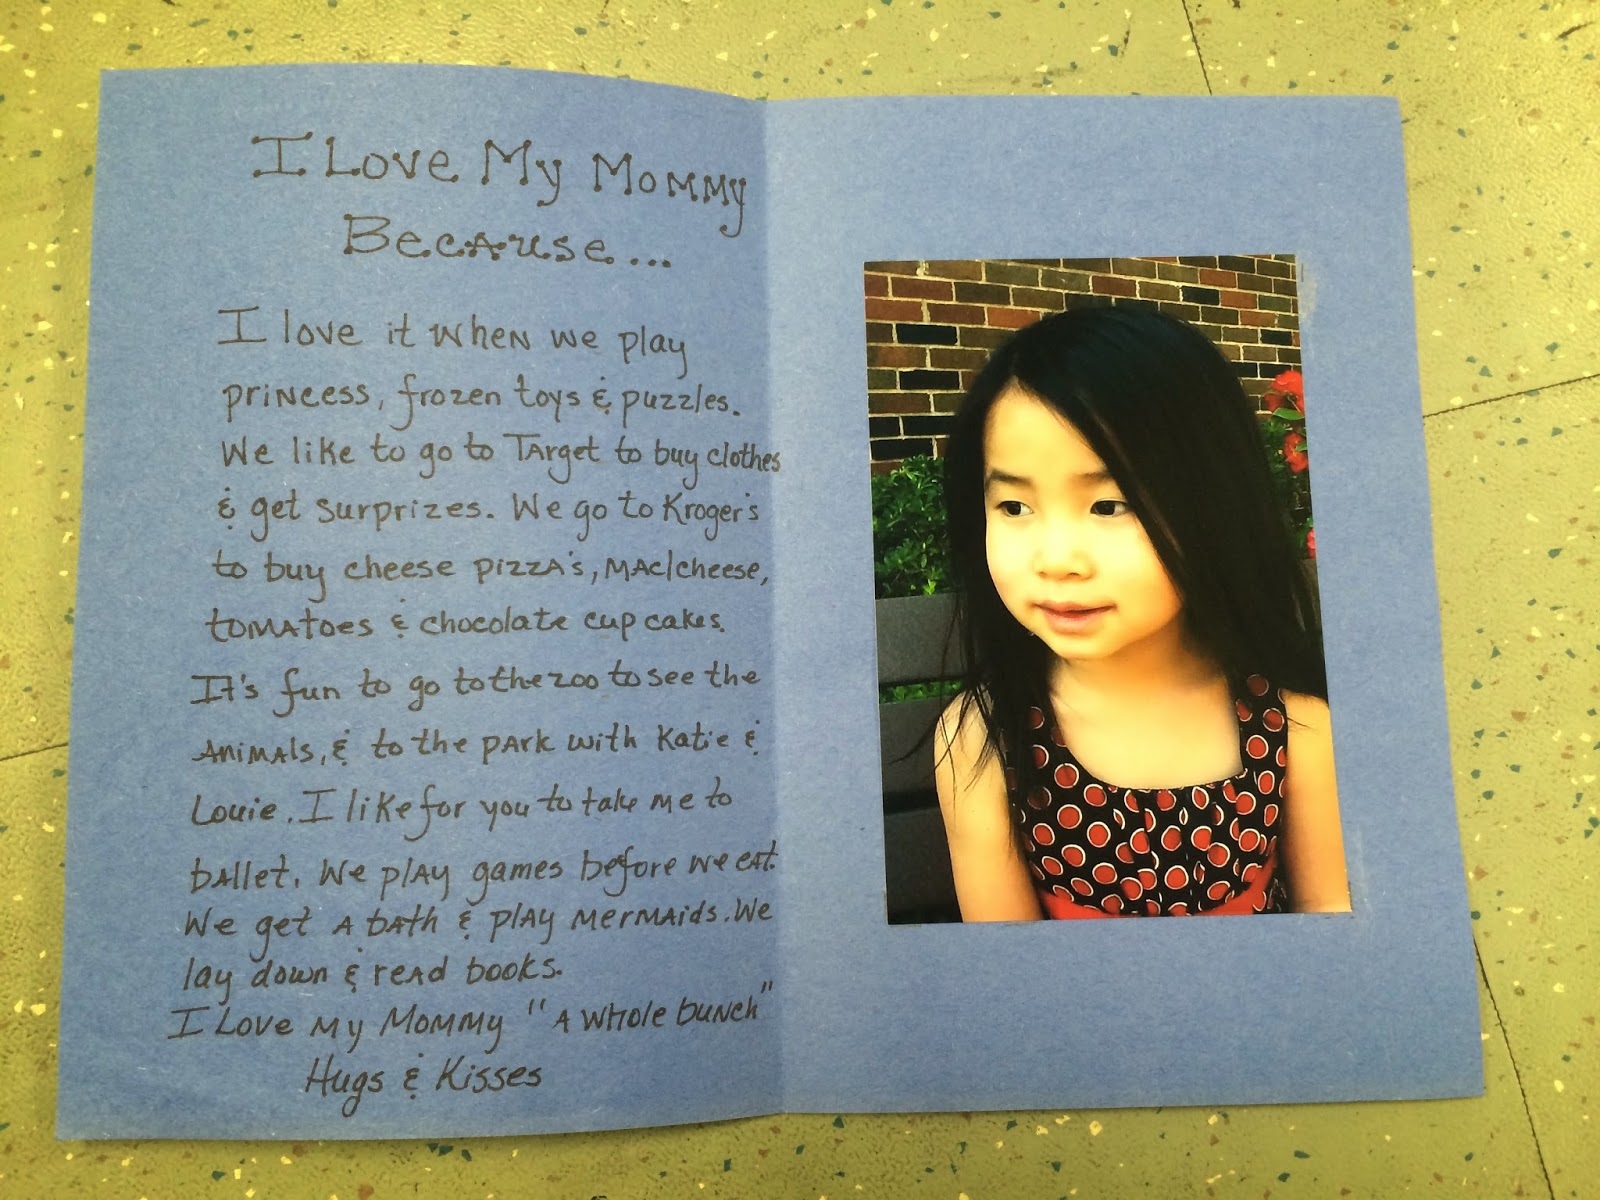 I Love My Mommy
Because...
I love it when we play
princess, frozen toys & puzzles.
We like to go to Target to buy clothes
& get surprizes. We go to Kroger's
to buy cheese pizza's, mac/cheese,
tomatoes & chocolate cup cakes.
It's fun to go to the zoo to see the
animals, & to the park with Katie &
Louie. I like for you to take me to
ballet. We play games before we eat.
We get a bath & play mermaids. We
lay down & read books.
I Love my Mommy "a whole bunch"
Hugs & Kisses